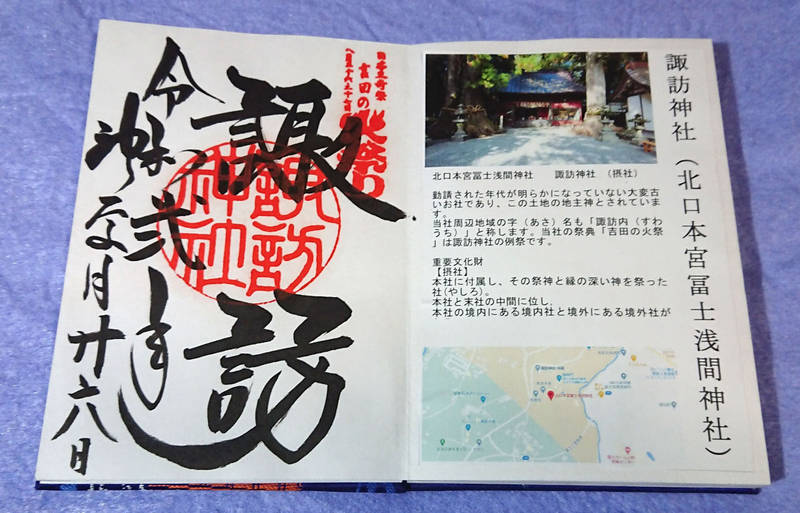 諏訪神社(北口本宮冨士浅間神社)
北口本宮冨士浅間神社 諏訪神社 (摂社)
勧請された年代が明らかになっていない大変古
いお社であり、この土地の地主神とされていま
す。
当社周辺地域の字(あさ)名も「諏訪内(すわ
うち)」と称します。当社の祭典「吉田の火祭
」は諏訪神社の例祭です。
重要文化財
【摂社】
本社に付属し、その祭神と縁の深い神を祭った
社(やしろ)。
本社と末社の中間に位し.
本社の境内にある境内社と境外にある境外社が
日本三奇祭
吉田の火祭り
諏訪
諏訪
神社
令和弐年
月廿六日